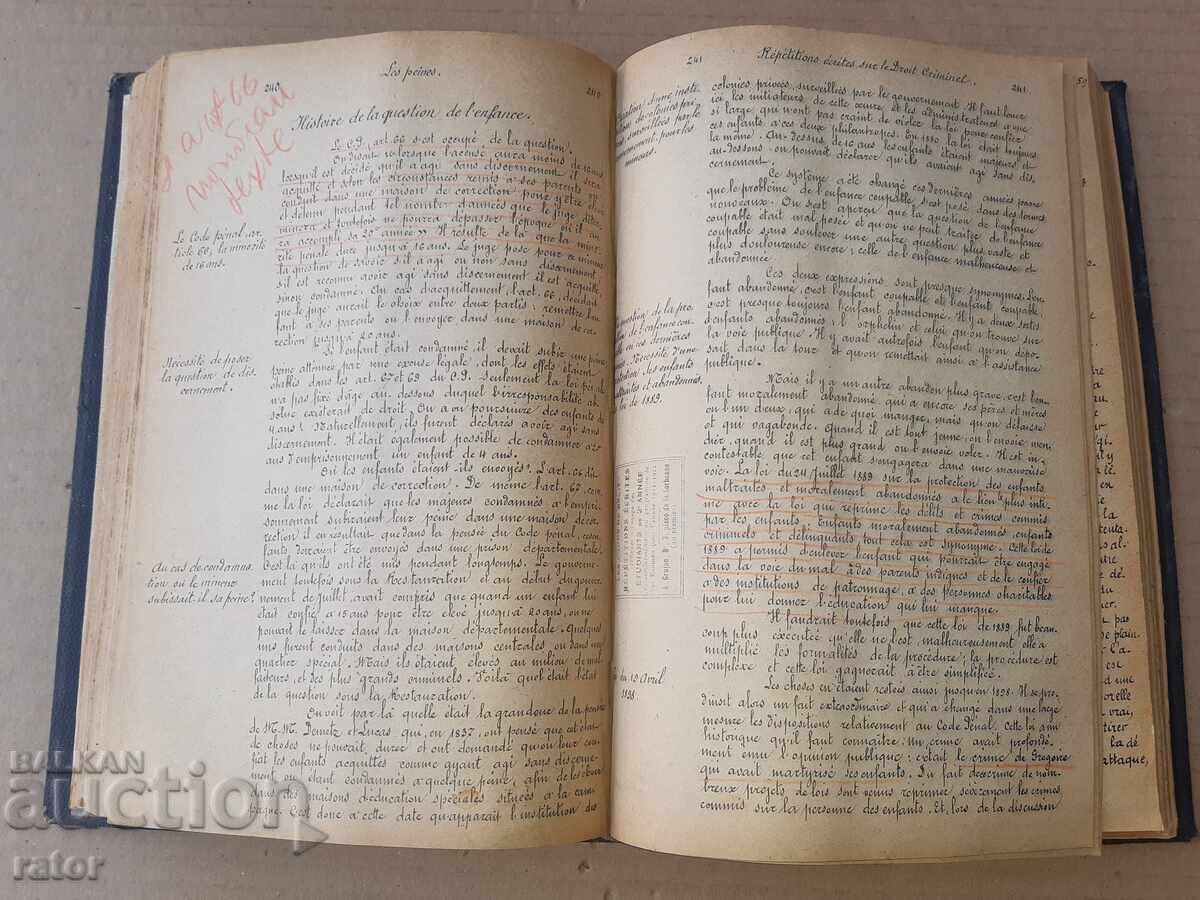 240
Les peines.
240
Histoire de la question de l'enfance.
Le C. P., art. 66 s'est occupé de la question.
On devait « lorsque l'accusé aura moins de 16 ans
lorsqu'il est décidé qu'il a agi sans discernement il sera
acquitté et selon les circonstances remis à ses parents ou
conduit dans une maison de correction pour y être élevé
et détenu pendant tel nombre d'années que le juge déter
minera et toutefois ne pourra dépasser l'époque où il au
ra accompli sa 20e année ». Il résulte de là que la mino
rité pénale dure jusqu'à 16 ans. Le juge pose pour ce mineur
la question de savoir s'il a agi ou non sans discernement,
s'il est reconnu avoir agi sans discernement il est acquitté
sinon condamné. Au cas d'acquittement, l'art. 66, décidait
que le juge aurait le choix entre deux partis, remettre l'en
fant à ses parents ou l'envoyer dans une maison de cor
rection jusqu'à 20 ans.
Le Code pénal ar-
ticle 66, la minorité
de 16 ans.
Si l'enfant était condamné il devait subir une peine
atténuée par une excuse légale, dont les effets étaient
établis dans les art. 67 et 69 du C. P. Seulement la loi pénale
n'a pas fixé d'âge au dessous duquel l'irresponsabilité ab-
solue existerait de droit. On a vu poursuivre des enfants de
4 ans! Naturellement, ils furent déclarés avoir agi sans
discernement. Il était également possible de condamner à 20
ans d'emprisonnement un enfant de 4 ans.
Nécessité de poser
la question de dis-
cernement.
Où les enfants étaient-ils envoyés? L'art. 66 dit
dans une maison de correction. De même l'art. 67, com
me la loi déclarait que les majeurs condamnés à l'empri-
sonnement subiraient leur peine dans une maison de cor
rection il en résultait que dans la pensée du Code pénal, ces en
fants devraient être envoyés dans une prison départementale.
C'est là qu'ils ont été mis pendant longtemps. Le gouverne-
ment toutefois sous la Restauration et au début du gouver
nement de Juillet, avait compris que quand un enfant lui
était confié à 15 ans pour être élevé jusqu'à 20 ans, on ne
pouvait le laisser dans la maison départementale. Quelques
uns furent conduits dans des maisons centrales ou dans un
quartier spécial. Mais ils étaient élevés au milieu de mal
faiteurs, et des plus grands criminels. Voilà quel était l'état
de la question sous la Restauration.
Au cas de condamna
tion où le mineur
subissait-il sa peine?
On voit par là quelle était la grandeur de la pensée
de M. M. Demetz et Lucas, qui, en 1837, ont pensé que cet état
de choses ne pouvait durer et ont demandé qu'on leur con
fiât les enfants acquittés comme ayant agi sans discer-
nement ou étant condamnés à quelque peine, afin de les élever
dans des maisons d'éducation spéciales situées à la cam
pagne. C'est donc à cette date qu'apparaît l'institution des
241
Répétitions écrites sur le Droit Criminel.
241
colonies privées, surveillées par le gouvernement. Il faut louer
ici, les initiateurs de cette œuvre, et les administrateurs d'une
si large, qui n'ont pas craint de violer la loi pour confier
ces enfants à ces deux philanthropes. En 1832 la loi était toujours
la même. Au-dessus de 16 ans les enfants étaient majeurs et
au-dessous on pouvait déclarer qu'ils avaient agi sans dis
cernement.
Ce système a été changé ces dernières années parce
que le problème de l'enfance coupable, s'est posé sans des termes
nouveaux. On s'est aperçu que la question de l'enfance
coupable était mal posée et qu'on ne peut traiter de l'enfance
coupable sans soulever une autre question plus vaste et
plus douloureuse encore; celle de l'enfance malheureuse et
abandonnée.
Ces deux expressions sont presque synonymes. L'en-
fant abandonné, c'est l'enfant coupable et l'enfant coupable,
c'est presque toujours l'enfant abandonné. Il y a deux sortes
d'enfants abandonnés; l'orphelin et celui qu'on trouve sur
la voie publique. Il y avait autrefois l'enfant qu'on dépo-
sait dans la tour et qu'on remettait ainsi à l'assistance
publique.
de 1889.
Mais il y a un autre abandon plus grave, c'est l'en-
fant moralement abandonné, qui a encore ses pères et mères
ou l'un d'eux, qui a de quoi manger, mais qu'on délaisse
et qui vagabonde. Quand il est tout jeune, on l'envoie men
dier, quand il est plus grand on l'envoie voler. Il est in-
contestable que cet enfant s'engagera dans une mauvaise
voie. La loi du 24 Juillet 1889 sur la protection des enfants
maltraités et moralement abandonnés a le lien plus inti
me avec la loi qui réprime les délits et crimes commis
par les enfants. Enfants moralement abandonnés, enfants
criminels et délinquants, tout cela est synonyme. Cette loi de
1889 a permis d'enlever l'enfant qui pourrait être engagé
dans la voie du mal à des parents indignes et de le confier
à des institutions de patronnage, à des personnes charitables
pour lui donner l'éducation qui lui manque.
Il faudrait toutefois, que cette loi de 1889 fut beau-
coup plus exécutée qu'elle ne l'est, malheureusement, elle a
multiplié les formalités de la procédure; la procédure est
complexe et cette loi gagnerait à être simplifiée.
du 19 Avril
1898.
Les choses en étaient restées ainsi jusqu'en 1898. Il se pro-
duisit alors un fait extraordinaire et qui a changé dans une large
mesure les dispositions relativement au Code Pénal. Cette loi a un
historique qu'il faut connaître: Un crime avait profondé-
ment ému l'opinion publique; c'était le crime de Grégoire
qui avait martyrisé ses enfants. Du fait de ce crime de nom-
breux projets de lois sont venus réprimer, les crimes
commis sur la personne des enfants. Et, lors de la discussion
RÉPÉTITIONS ÉCRITES
BALKAN
auction
rator